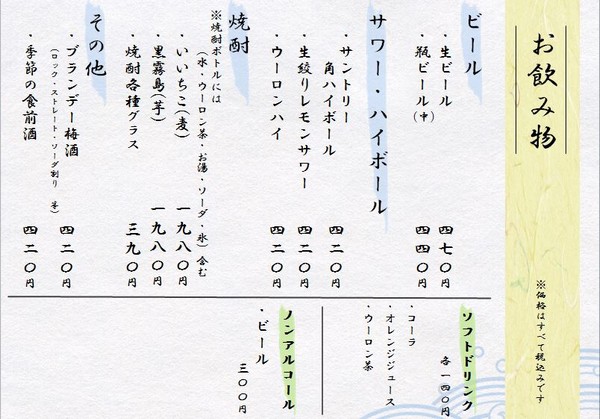 お飲み物
※価格はすべて税込みです
ビール
・生ビール 四七〇円
・瓶ビール(中) 四四〇円
サワー・ハイボール
・サントリー
角ハイボール 四二〇円
・生絞りレモンサワー 四二〇円
・ウーロンハイ 四二〇円
焼酎
※焼酎ボトルには
(水・ウーロン茶・お湯・ソーダ・氷)含む
・いいちこ(麦) 一九八〇円
・黒霧島(芋) 一九八〇円
・焼酎各種グラス 三九〇円
その他
・ブランデー梅酒 四二〇円
(ロック・ストレート・ソーダ割り 等)
・季節の食前酒 四二〇円
ソフトドリンク
各一四〇円
・コーラ
・オレンジジュース
・ウーロン茶
ノンアルコール
・ビール 三〇〇円